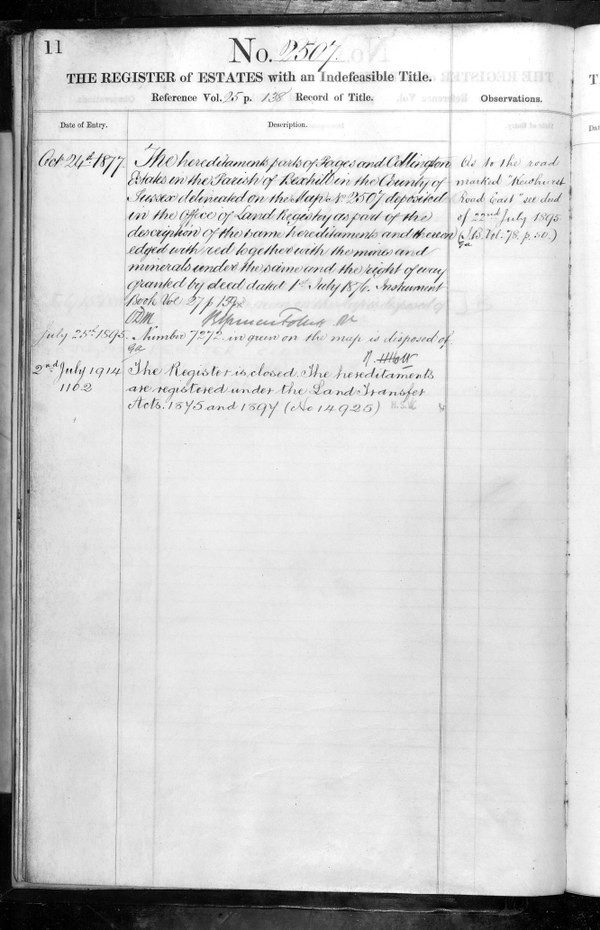 11
No. 2507.
THE REGISTER of ESTATES with an Indefeasible Title.
Reference Vol. 25 p. 138 Record of Title.
Observations.
Date of Entry.
Description.
Oct 24th 1877.
The hereditaments parts of Pages and Collington
Estates in the Parish of Bexhill in the County of
Sussex delineated on the Map No 2507 deposited
in the Office of Land Registry as part of the
description of the same hereditaments and thereon
edged with red together with the mines and
minerals under the same and the right of way
granted by deed dated 1st July 1876. Instrument
Book Vol 27 p
As to the road
marked
Road East" see deed
of 22nd July 1895
(I.B. Vol. 78. p. 50.)
July 25th 1895.
Number 7272 in green on the map is disposed of
2nd July 1914
1102
The Register is closed The hereditaments
are registered under the Land Transfer
Acts. 1875 and 1897 (No 14925)